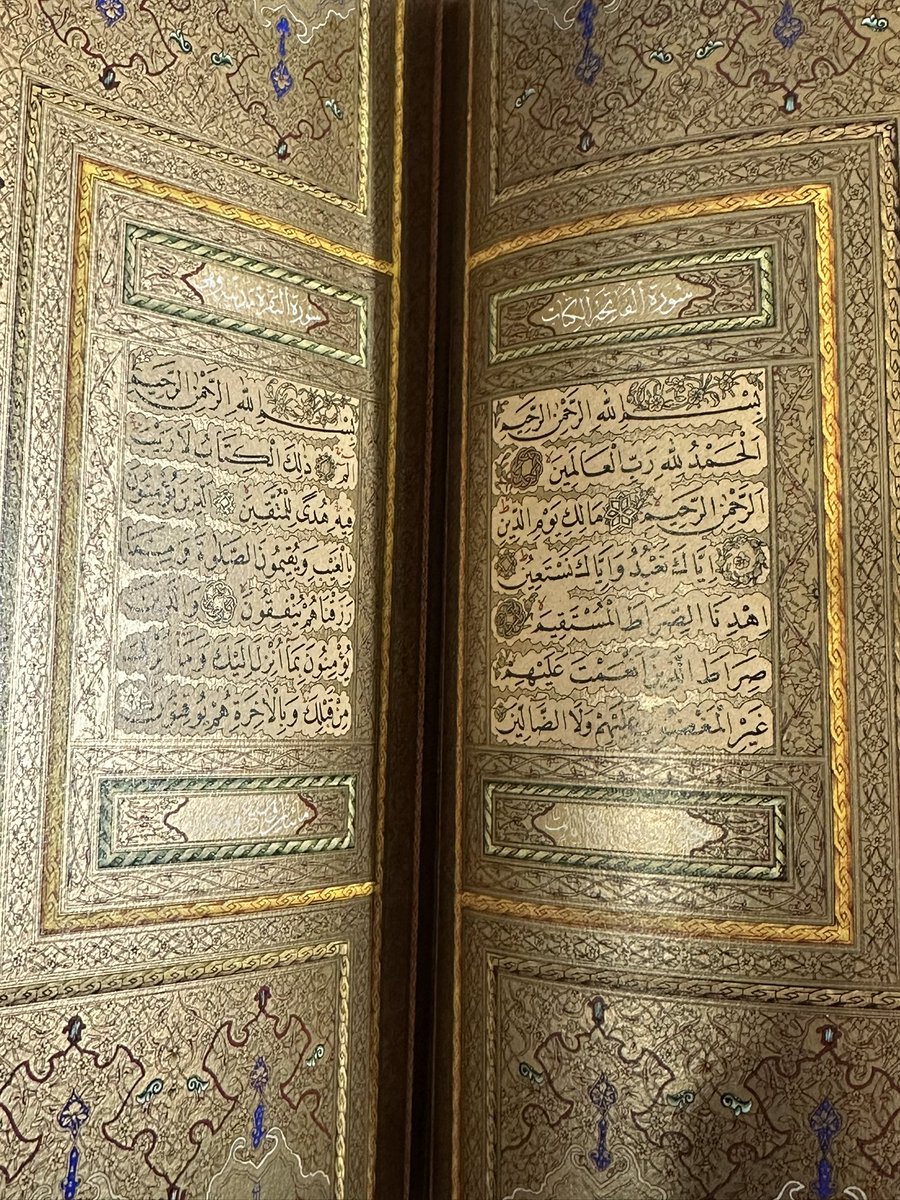 سورة الفاتحة الكتاب
بسم الله الرحمن الرحيم
الحمد لله رب العالمين
الرحمن الرحيم مالك يوم الدين
اياك نعبد واياك نستعين
اهدنا الصراط المستقيم
صراط الذين انعمت عليهم
غير المغضوب عليهم ولا الضالين
سورة البقرة مدنية
بسم الله الرحمن الرحيم
الم ذلك الكتاب لا ريب
فيه هدى للمتقين الذين يؤمنون
بالغيب ويقيمون الصلوة ومما
رزقناهم ينفقون والذين
يؤمنون بما انزل اليك وما انزل
من قبلك وبالاخرة هم يوقنون